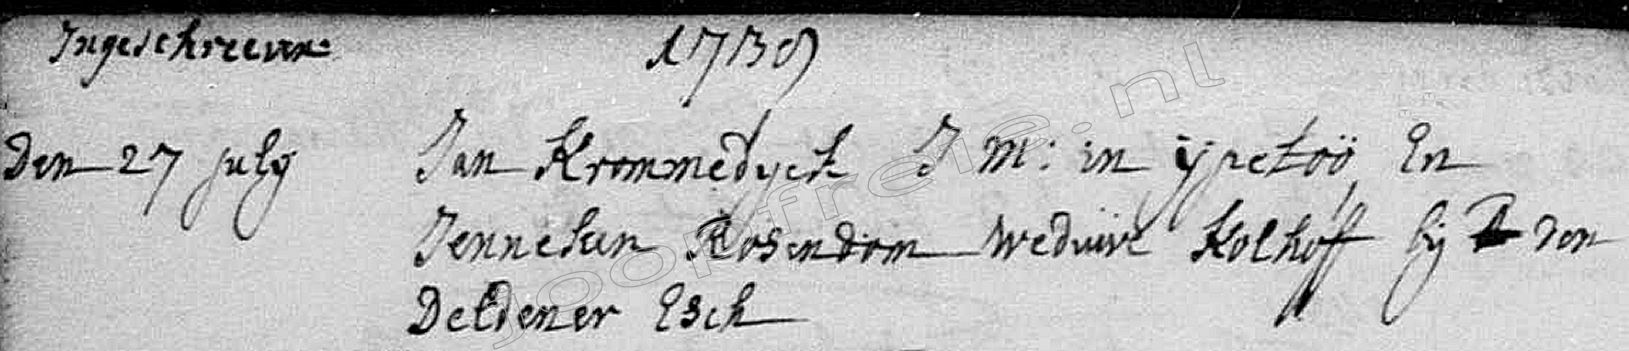 Ingeschreven 1739
Den 27 july Jan Krommedyck J M: in ÿpeloÿ En
Jenneken Rosendom weduwe Kolhoff bij den
Deldener Esch
joopfreis.nl